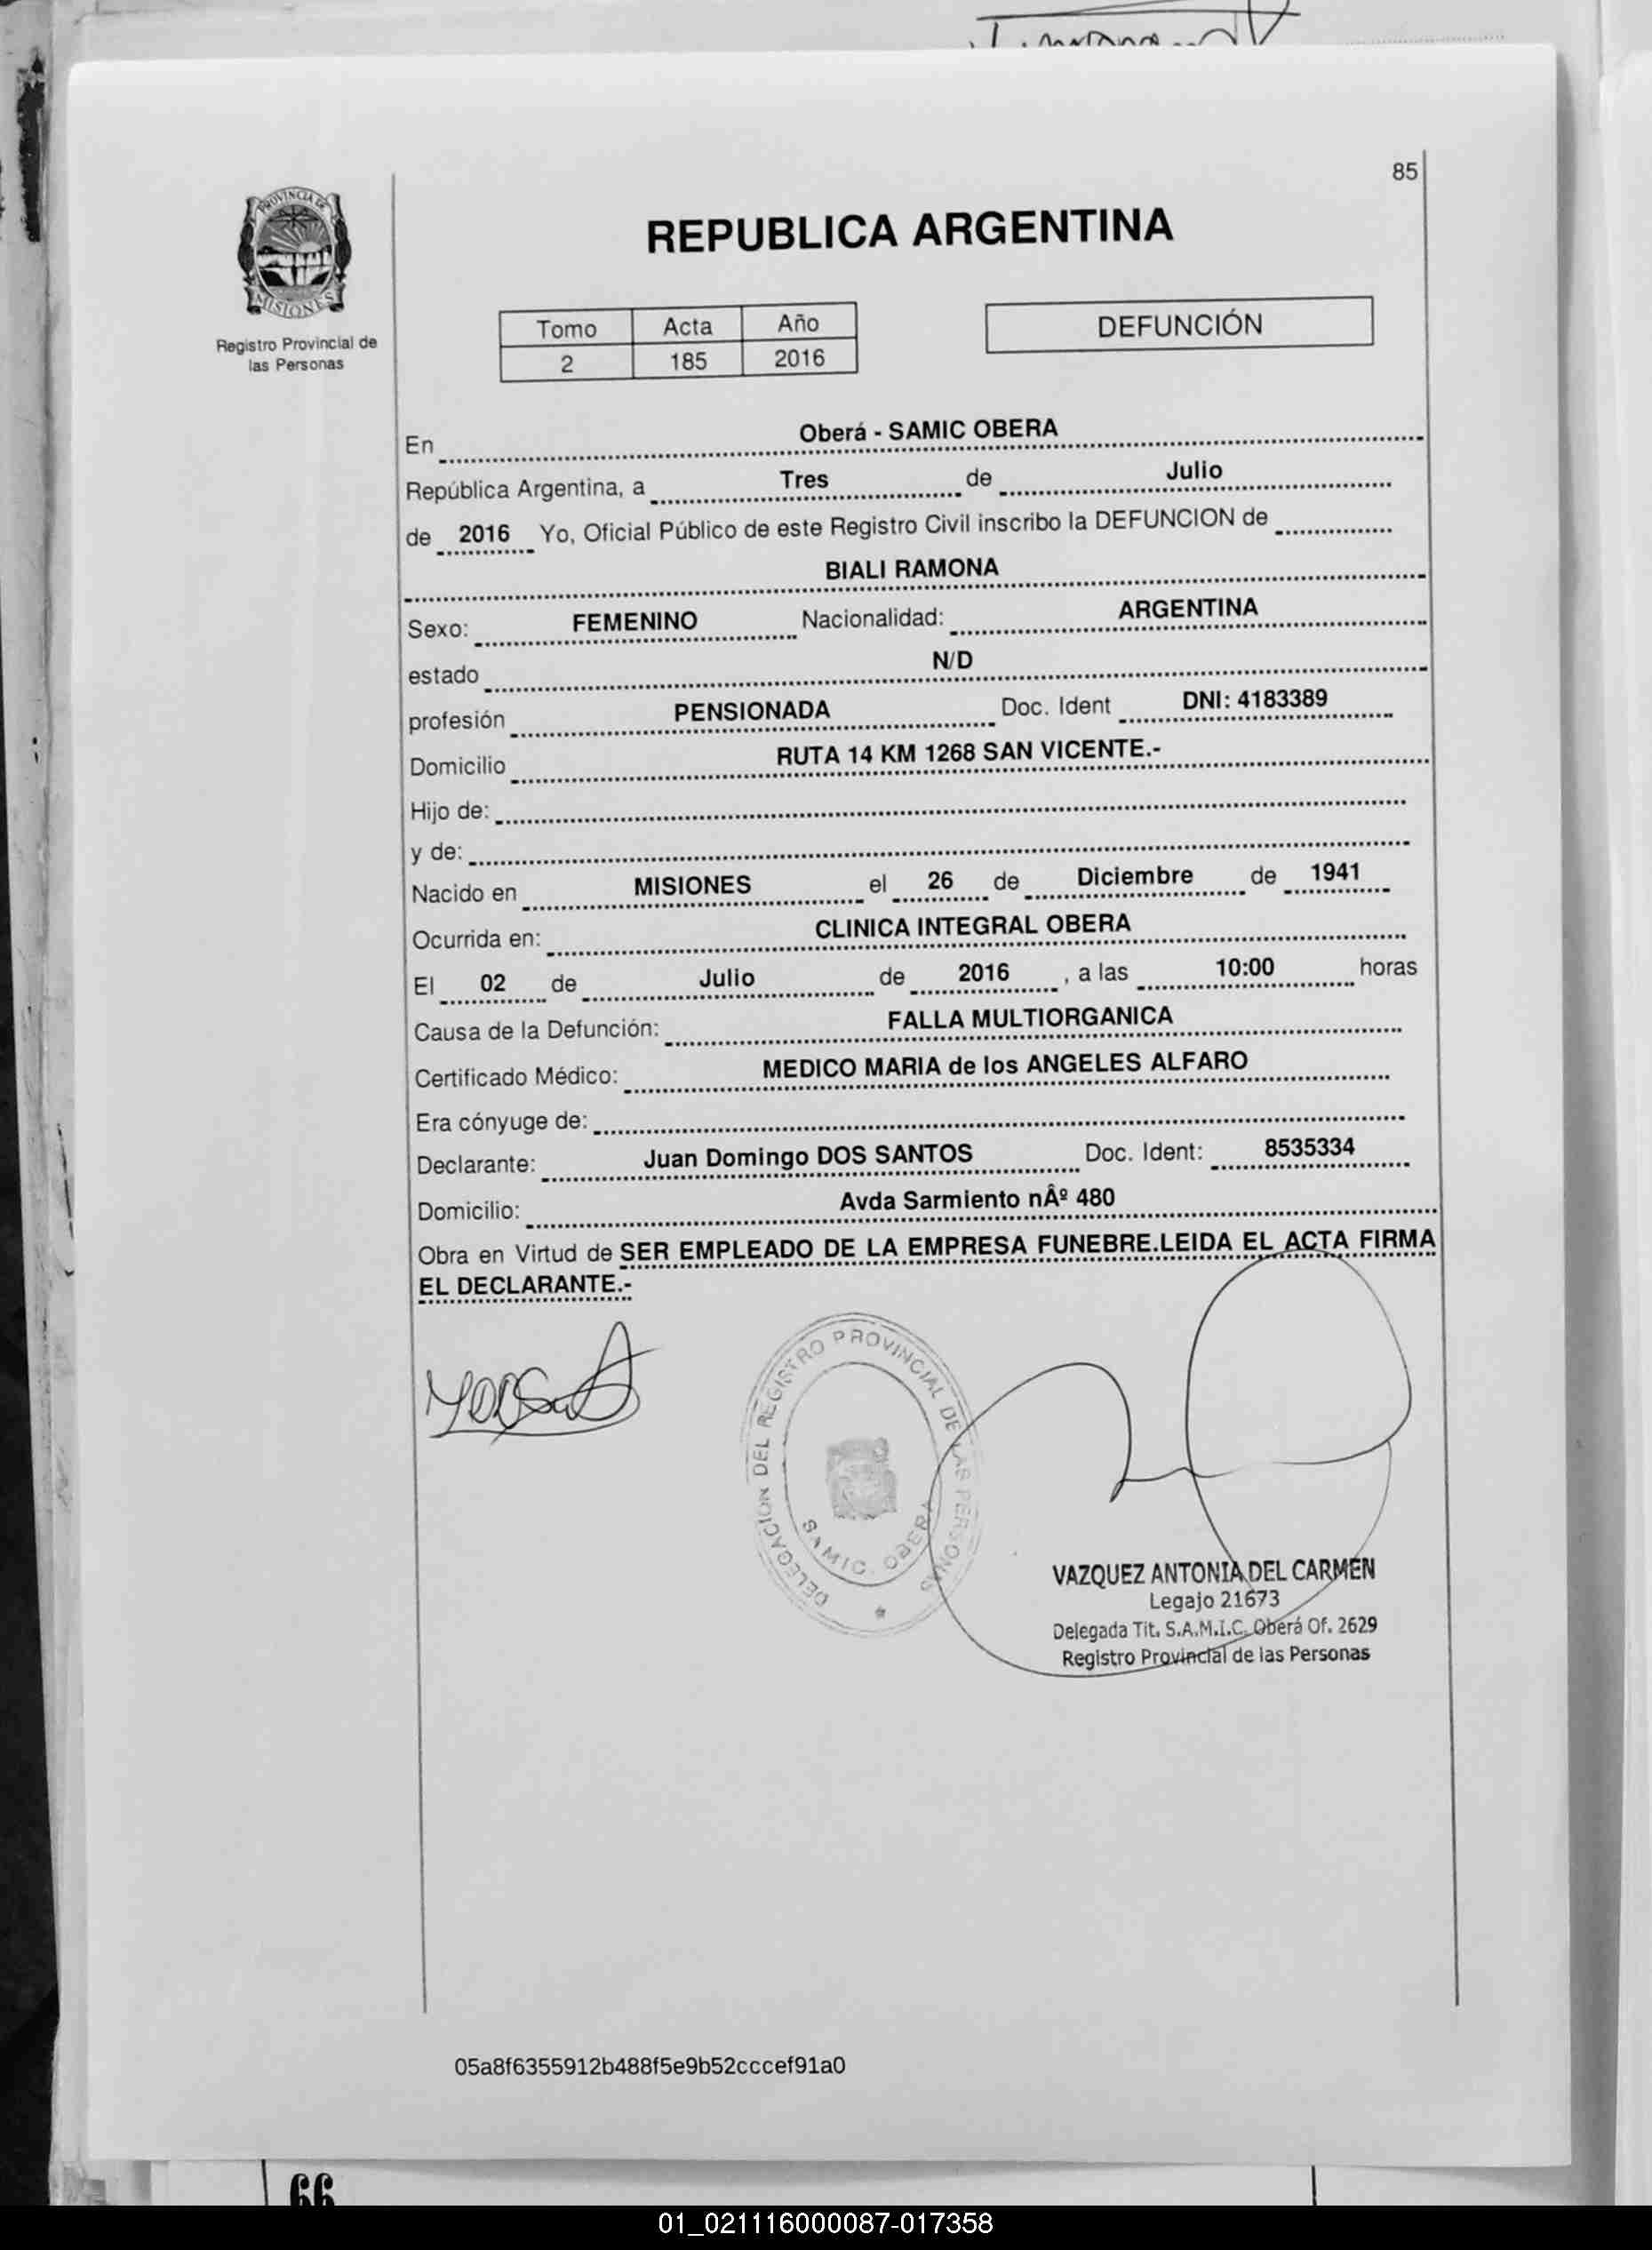 85
PROVINCIA DE
MISIONES
Registro Provincial de
las Personas
REPUBLICA ARGENTINA
Tomo Acta Año
2 185 2016
DEFUNCIÓN
En Oberá - SAMIC OBERA
República Argentina, a Tres de Julio
de 2016 Yo, Oficial Público de este Registro Civil inscribo la DEFUNCION de
BIALI RAMONA
Sexo: FEMENINO Nacionalidad: ARGENTINA
estado N/D
profesión PENSIONADA Doc. Ident DNI: 4183389
Domicilio RUTA 14 KM 1268 SAN VICENTE.-
Hijo de:
y de:
Nacido en MISIONES el 26 de Diciembre de 1941
Ocurrida en: CLINICA INTEGRAL OBERA
El 02 de Julio de 2016 , a las 10:00 horas
Causa de la Defunción: FALLA MULTIORGANICA
Certificado Médico: MEDICO MARIA de los ANGELES ALFARO
Era cónyuge de:
Declarante: Juan Domingo DOS SANTOS Doc. Ident: 8535334
Domicilio: Avda Sarmiento nÂº 480
Obra en Virtud de SER EMPLEADO DE LA EMPRESA FUNEBRE.LEIDA EL ACTA FIRMA
EL DECLARANTE.-
DELEGACION DEL REGISTRO PROVINCIAL DE LAS PERSONAS
SAMIC OBERA
VAZQUEZ ANTONIA DEL CARMEN
Legajo 21673
Delegada Tit. S.A.M.I.C. Oberá Of. 2629
Registro Provincial de las Personas
05a8f6355912b488f5e9b52cccef91a0
66
01_021116000087-017358